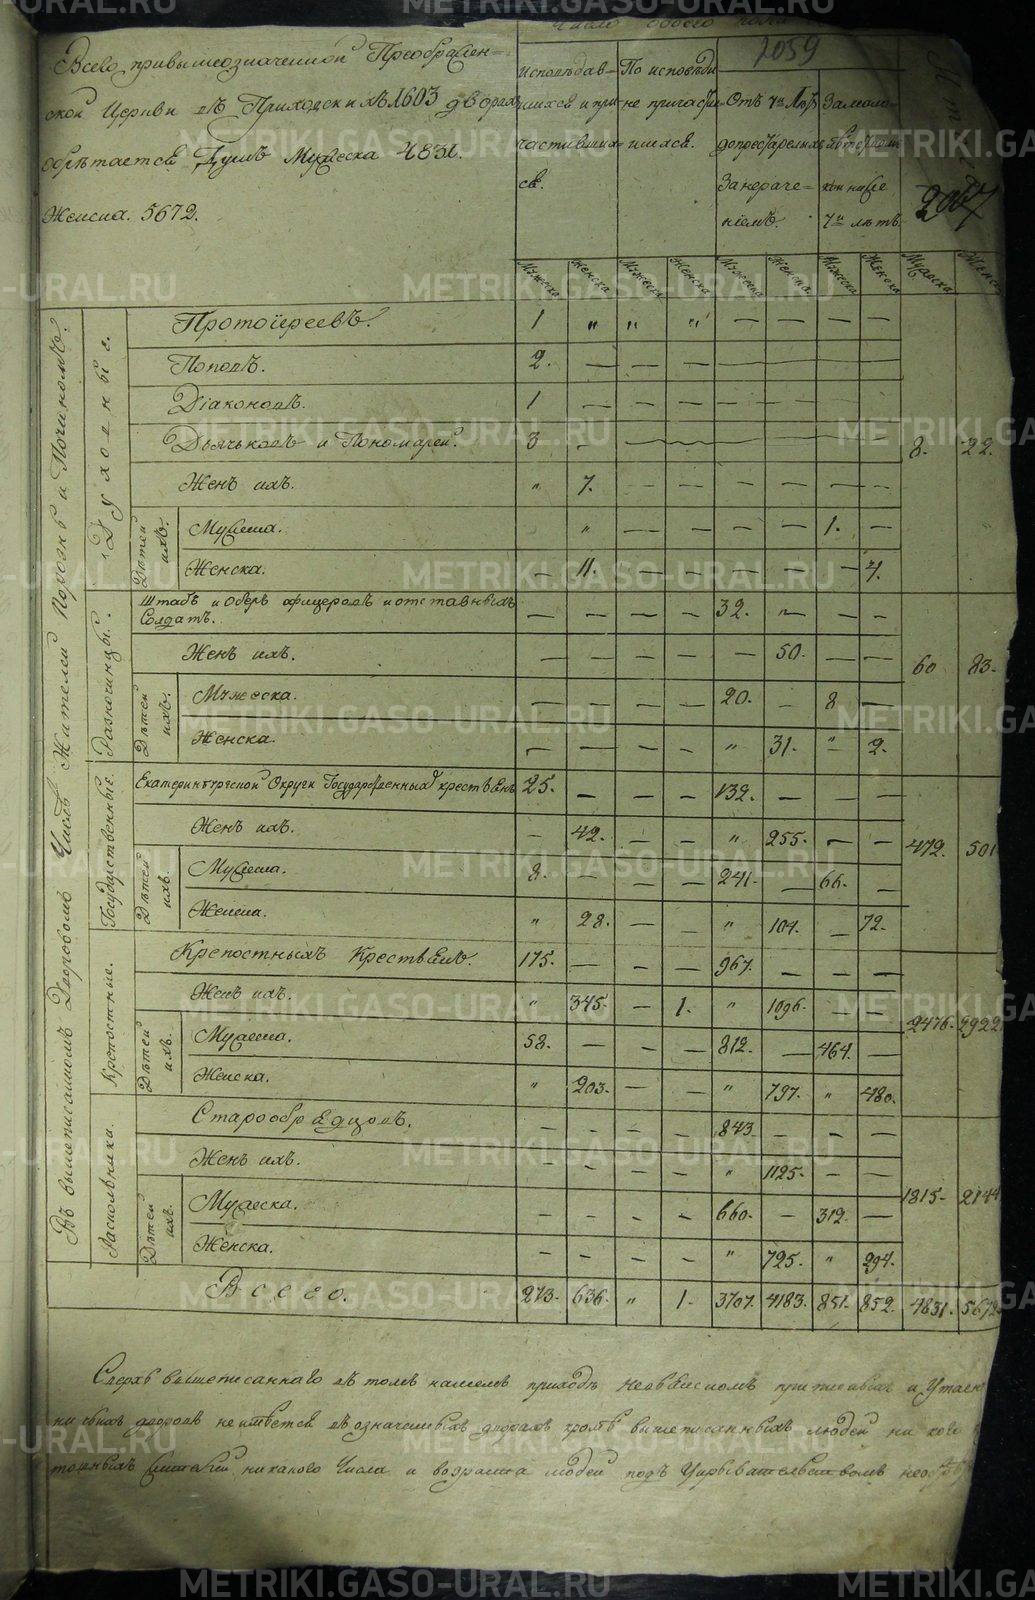 Число обоего пола
2059
Всево привышеозначенной Преображен=
ской Церкви въ Приходскихъ 1603 дворахъ
обрѣтается Душъ Мужеска 4831.
Женска. 5672.
Исповѣдав=
шихся и при
частивших
ся.
По исповѣди
не причасти
вшихся.
Отъ 7и Лѣтъ
до престарелыхъ
За нераче=
ніемъ.
За мало
лѣтством
кои ниже
7и лѣтъ.
2067
Мужеска Женска Мужеска Женска Мужеска Женска Мужеска Женска Мужеска Женск
Въ вышеписанномъ Дворовомъ Числѣ Жителей Порознь и Починомъ.
Духовные.
Протоіереевъ. 1 „ „ „ — — — —
Поповъ. 2. — — — — — — —
Діаконовъ. 1 — — — — — — —
Дьячьковъ и Пономарей. 3 — — — — — — — 8. 22.
Женъ ихъ. „ 7. — — — — — —
Дѣтей ихъ.
Мужеска. „ — — — — 1. —
Женска. — 11. — — — — — 4.
Разночинцы.
Штабъ и Оберъ офицеровъ и отставныхъ
Солдатъ. — — — — 32. „ — —
Женъ ихъ. — — — — — 50. — — 60 83.
Дѣтей ихъ.
Мужеска. — — — — 20. — 8 —
Женска. — — — — „ 31. „ 2.
Государственные.
Екатеринбургской Округи Государственныхъ крестьянъ 25. — — — 132. — — —
Женъ ихъ. — 42. — — „ 255. — — 472. 501
Дѣтей ихъ.
Мужеска. 8. — — — 241. — 66. —
Женска. „ 28. — — „ 104. — 72.
Крепостные.
Крепостныхъ Крестьянъ. 175. — — — 967. — — —
Женъ ихъ. „ 345. — 1. „ 1096. — — 2476. 2922
Дѣтей ихъ.
Мужеска. 58. — — — 812. — 464. —
Женска. „ 203. — — „ 797. „ 480.
Раскольника.
Старообрядцовъ. — — — — 843 — — —
Женъ ихъ. — — — — „ 1125. — — 1815. 2144
Дѣтей ихъ.
Мужеска. — — — — 660. — 312. —
Женска. — — — — „ 725. „ 294.
Всего. 273. 636. „ 1. 3707. 4183. 851. 852. 4831. 5672
Сверхъ вышеписаннаго въ томъ приходѣ и Утаен
ныхъ дворовъ не имѣется въ означенныхъ дворахъ кромѣ вышеписанныхъ людей
никакого Числа и возраста людей подъ
METRIKI.GASO-URAL.RU